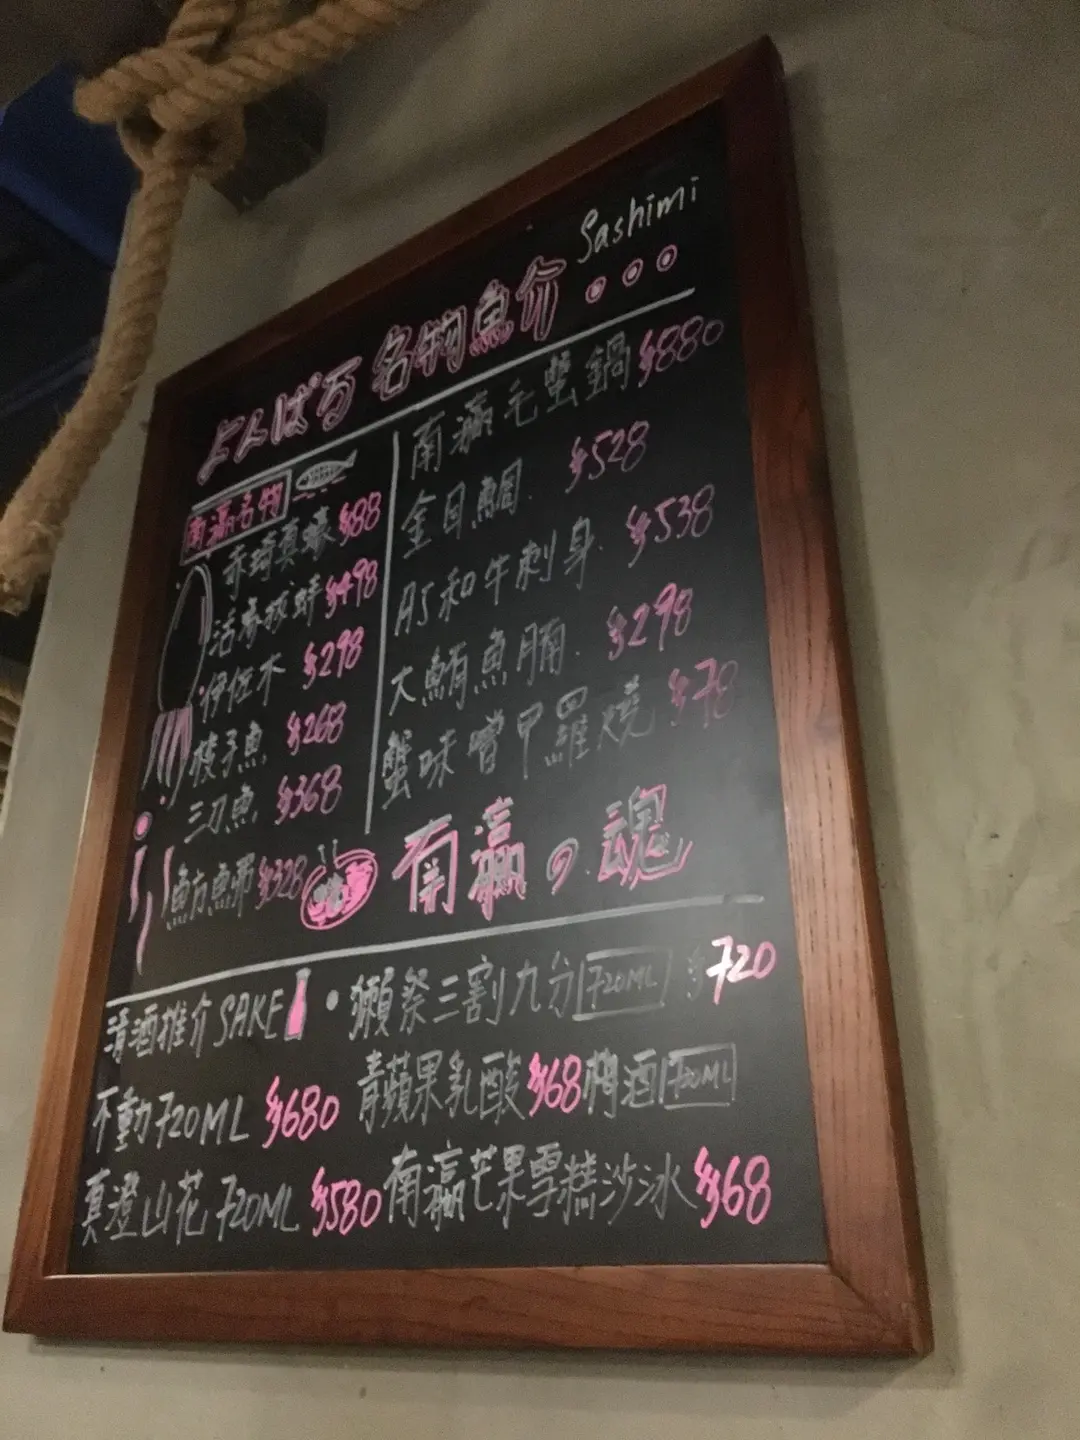 Sashimi
とんぱる 名物魚介
南瀛名物
赤琦真蠔 $88
活 蚌 $498
伊佐木 $298
梭子魚 $268
三刀魚 $368
魴鮄 $328
南瀛毛蟹鍋 $880
金目鯛 $528
A5和牛刺身 $538
大鮪魚腩 $298
蟹味噌甲羅燒 $78
南瀛の魂
清酒推介 SAKE
• 獺祭三割九分 720ML $720
不動 720ML $680
青蘋果乳酸 $68 梅酒 720ML
真澄山花 720ML $580
南瀛芒果雪糕沙冰 $68